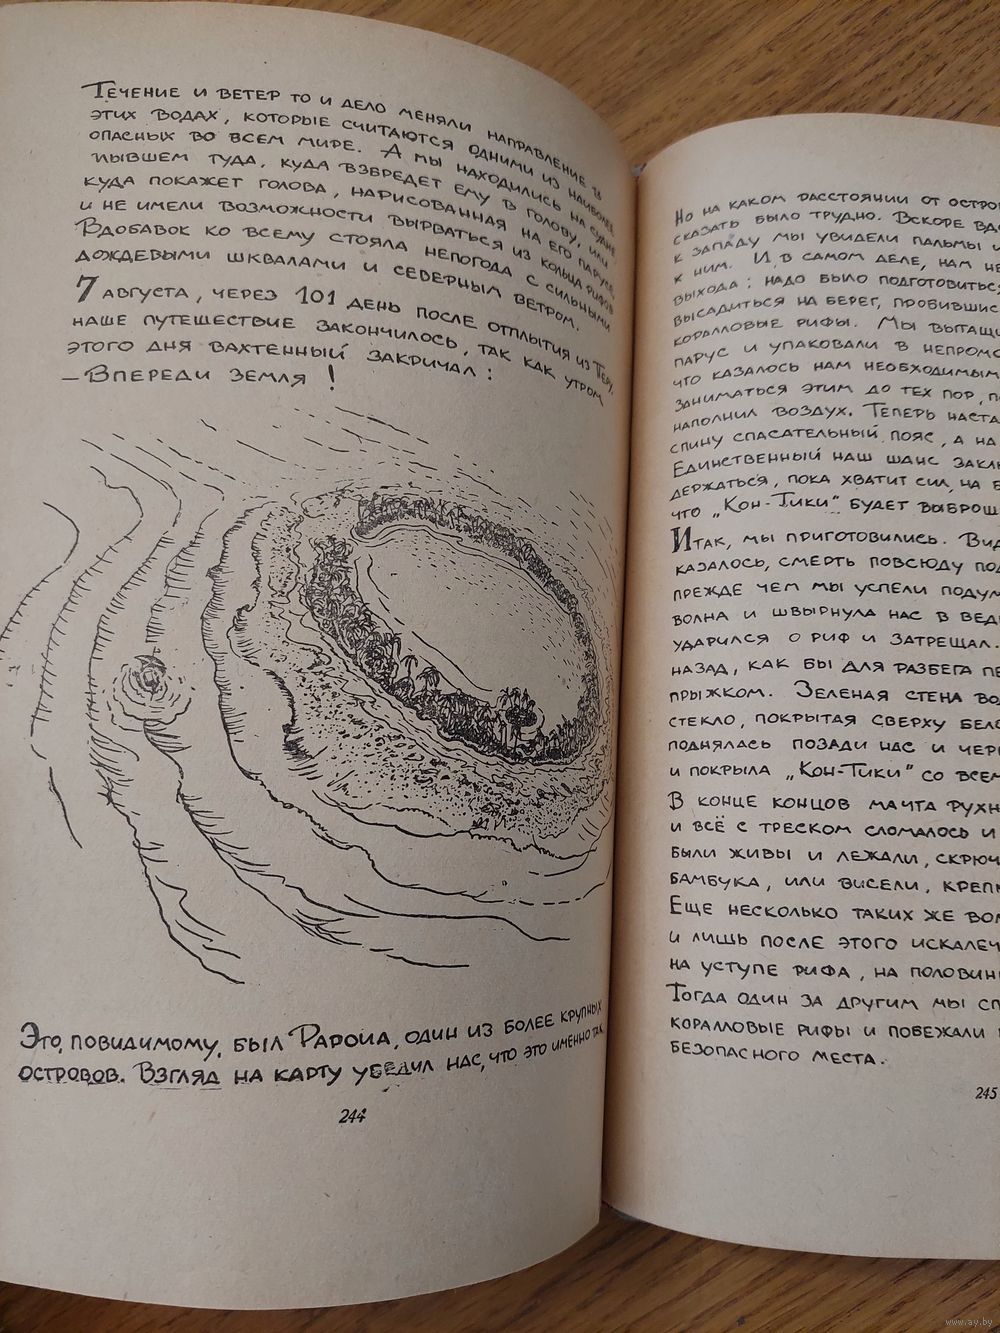 Течение и ветер то и дело меняли направление в
этих водах, которые считаются одними из наиболее
опасных во всем мире. А мы находились на судне
плывшем туда, куда взбредет ему в голову, или
куда покажет голова, нарисованная на его парусе,
и не имели возможности вырваться из кольца рифов
Вдобавок ко всему стояла непогода с сильными
дождевыми шквалами и северным ветром.
7 августа, через 101 день после отплытия из Перу,
наше путешествие закончилось, так как утром
этого дня вахтенный закричал:
– Впереди земля!
Это, повидимому, был Рароиа, один из более крупных
островов. Взгляд на карту убедил нас, что это именно так.
244
Но на каком расстоянии от остро
сказать было трудно. Вскоре вд
к западу мы увидели пальмы и
к ним. И, в самом деле, нам не
выхода: надо было подготовиться
высадиться на берег, пробившис
коралловые рифы. Мы вытащи
парус и упаковали в непромо
что казалось нам необходимым
Заниматься этим до тех пор, по
наполнил воздух. Теперь наста
спину спасательный пояс, а на
Единственный наш шанс заклю
держаться, пока хватит сил, на б
что „Кон-Тики" будет выброш
Итак, мы приготовились. Вид
казалось, смерть повсюду под
прежде чем мы успели подум
волна и швырнула нас в вед
ударился о риф и затрещал.
назад, как бы для разбега пе
прыжком. Зеленая стена во
стекло, покрытая сверху бело
поднялась позади нас и чер
и покрыла „Кон-Тики" со всем
В конце концов мачта рухн
и всё с треском сломалось и
были живы и лежали, скрюч
бамбука, или висели, крепк
Еще несколько таких же вол
и лишь после этого искалеч
на уступе рифа, на половин
Тогда один за другим мы сп
коралловые рифы и побежали
безопасного места.
245
www.ay.by